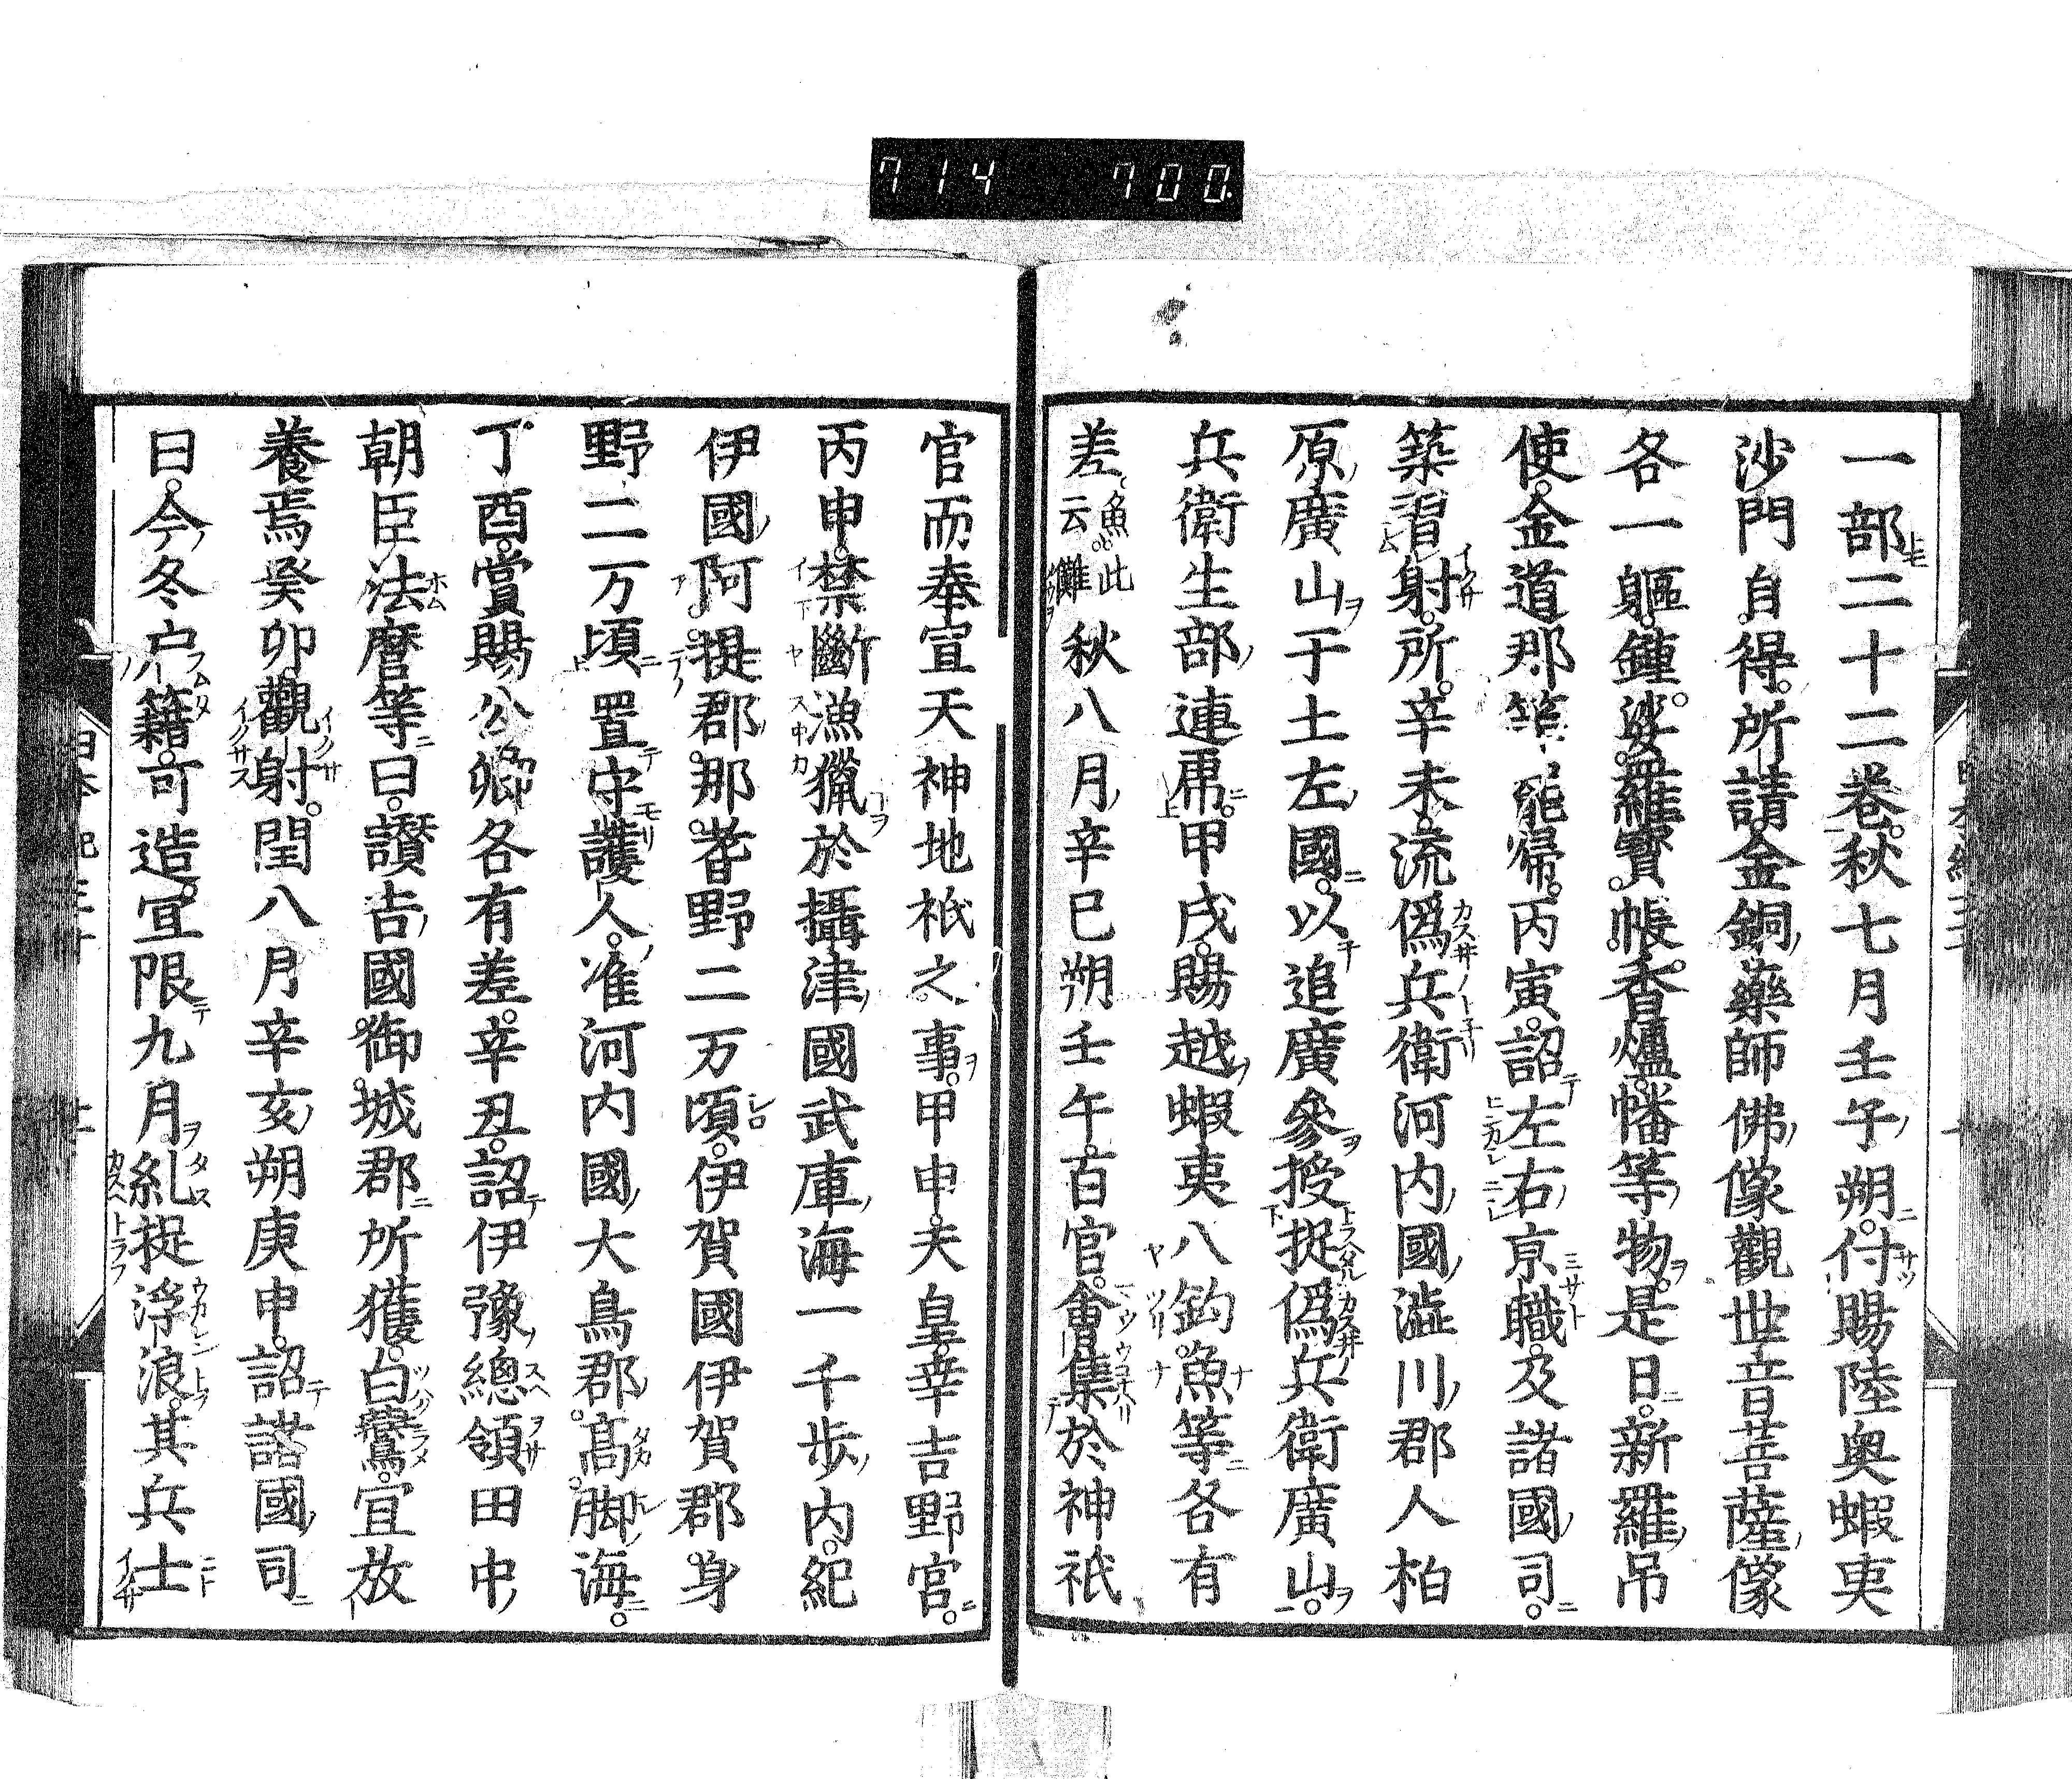 714 700.
一部二十二卷秋七月壬子朔付賜陸奥蝦夷
沙門自得所請金銅藥師佛像觀世音菩薩像
各一軀鍾娑羅寶帳香爐幡等物是日新羅吊
使金道那等罷帰丙寅詔左右京職及諸國司
築習射所辛未流僞兵衛河内國澁川郡人柏
原廣山于土左國以追廣參授捉僞兵衛廣山
兵衛生部連虎甲戌賜越蝦夷八釣魚等各有
差魚此云儺秋八月辛巳朔壬午百官會集於神祇
官而奉宣天神地祇之事甲申天皇幸吉野宮
丙申禁斷漁獵於攝津國武庫海一千歩内紀
伊國阿提郡那耆野二万頃伊賀國伊賀郡身
野二万頃置守護人准河内國大鳥郡髙脚海
丁酉賞賜公卿各有差辛丑詔伊豫總領田中
朝臣法麿等曰讃吉國御城郡所獲白鷰宜放
養焉癸卯觀射閏八月辛亥朔庚申詔諸國司
曰今冬户籍可造宜限九月糺捉浮浪其兵士